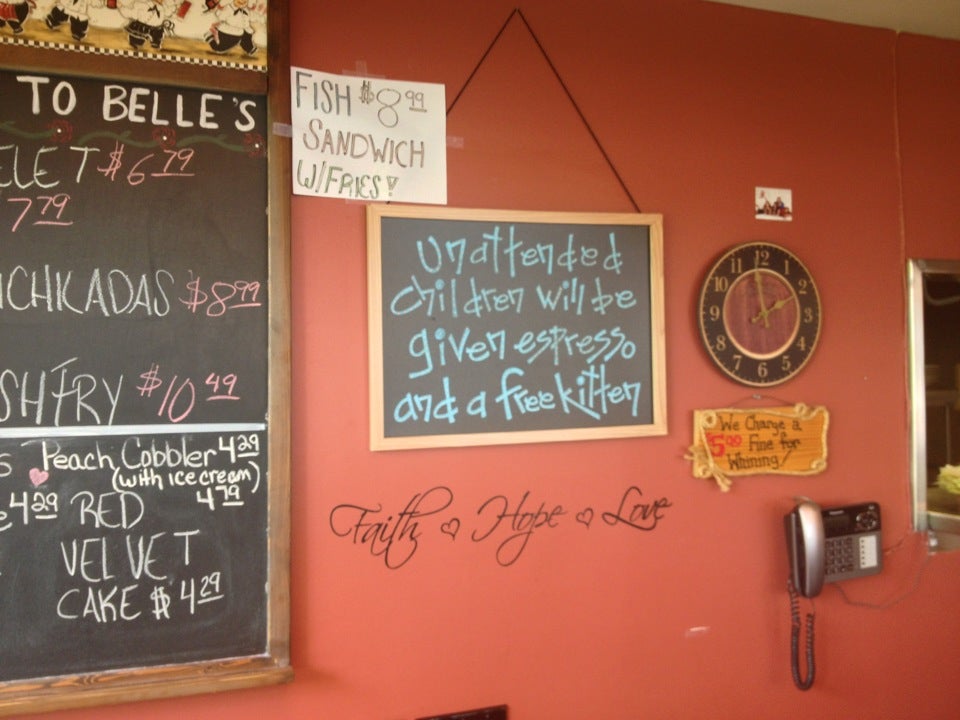 TO BELLE'S
$6.79
7.79
$8.99
$10.49
Peach Cobbler 4.29
(with ice cream)
4.79
4.29 RED
VELVET
CAKE $4.29
FISH $8.99
SANDWICH
W/FRIES!
Unattended
children will be
given espresso
and a free kitten
Faith Hope Love
12
1
2
3
4
5
6
7
8
9
10
11
We Charge a
5.00 Fine for
Whining!